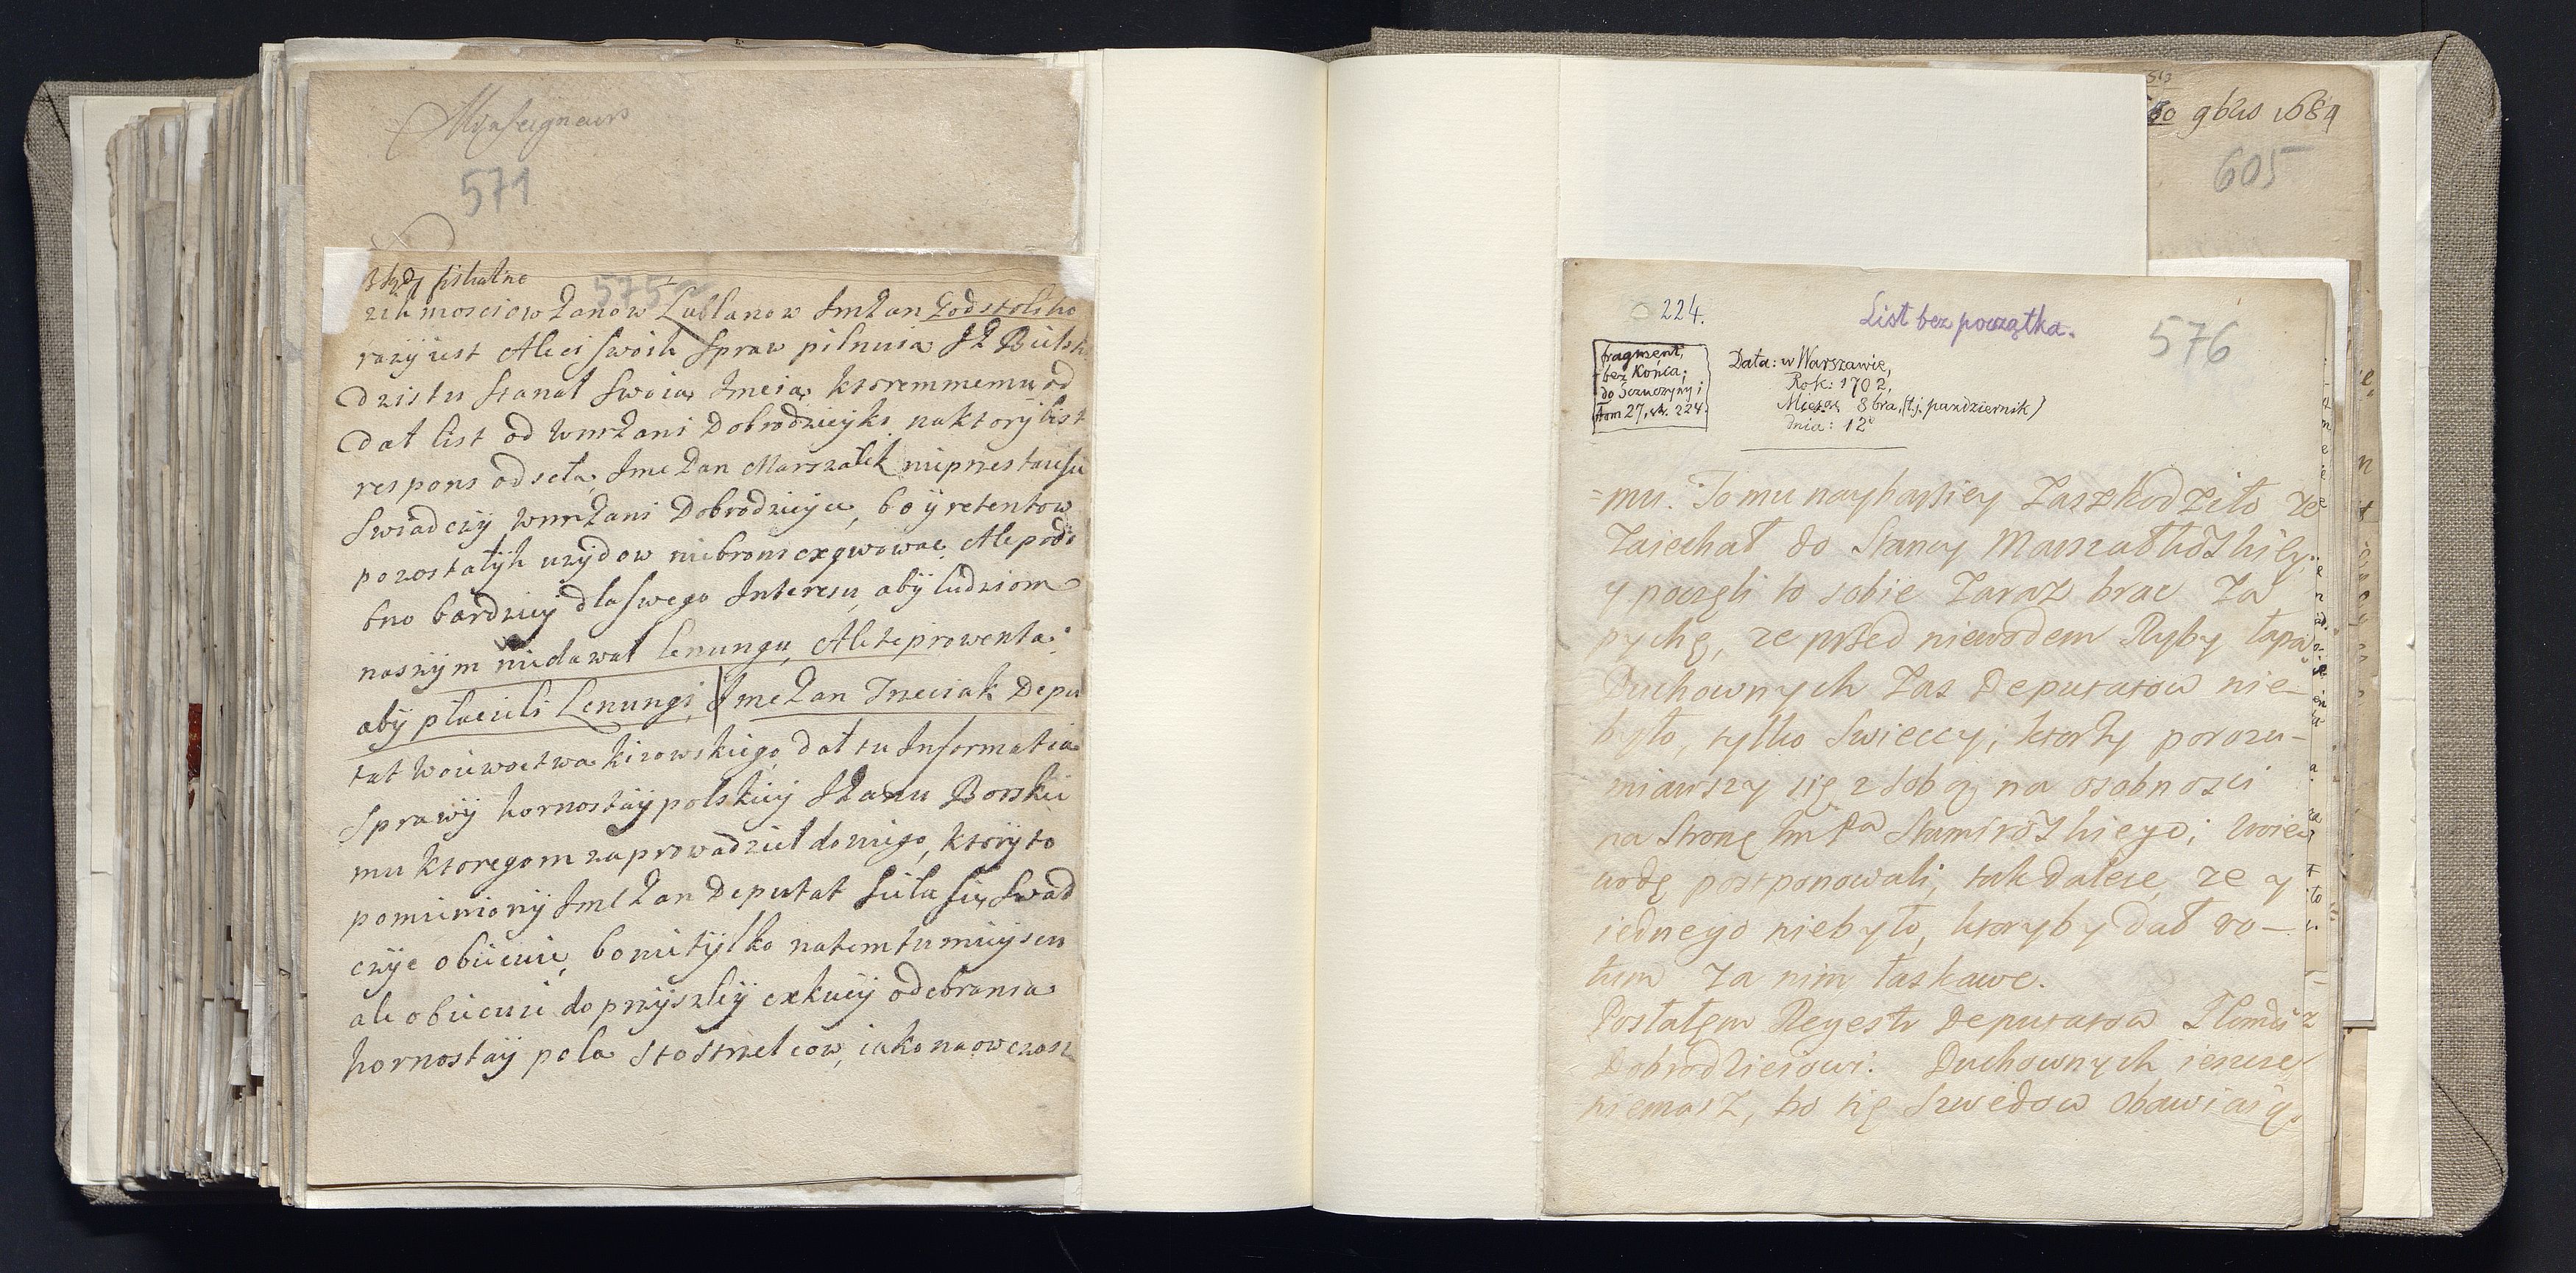 Monseigneur
571
575
fiskalne
ichmosciow Panow Lublanow ImPan Podstoli
razy iest Ale ci swoich Spraw pilnuia
Dzis tu stanał Swoią Imcią
dał list od WmPani Dobrodzieyki na ktory list
respons odseła, Imc Pan Marszałek nieprzestaie się
Swiadczÿ WmPani Dobrodzieyce, bo ÿ retentow
pozostałÿch uzÿdow niebroni exqwowac, Ale podo
bno bardziey dla swego Interesu, abÿ ludziom
naszÿm niedawał lenungu, Ale te prowenta
abÿ płacieli Lenungi, Imc Pan Trzeciak Depu
tat Woiewoctwa kiiowskiego dał tu Informatia
Sprawÿ hornostaÿpolskieÿ JPanu Borskie
mu ktoregom zaprowadzieł do niego, ktorÿ to
pomieniony Imc Pan Deputat siła się Swad
czÿc obiecuie, bo nietÿlko natem tu mieÿscu
ale obiecuie do przÿszleÿ exkucÿ odebrania
hornostaÿ pola Sto Strzelcow, iako na ow czas
50 9bris 1689
605
224.
List bez początka.
576
fragment,
bez końca;
do Szczuczyny i
tom 27, st. 224.
Data: w Warszawie,
Rok: 1702,
Miesiąc 8bra, (t.j. pazdziernik)
dnia: 12
=mu. Tomu nayharsiey Zaszkodziło ze
Zaiechał do Stancy Marszałkowskiey
y poczęli to sobie Zaraz brac Za
pychę, ze przed niewodem Ryby łapa
Duchownych Zas Deputatow nie-
było, tylko Swieccy; ktorzy porozu-
miawszy się z Sobą na osobnosci
na Stronę Im Pa Skumirowskiego; Woie
wodę postponowali, tak dalece, ze y
iednego niebyło, ktoryby dał vo-
tum Za nim łaskawe.
Posłałem Regestr Deputatow
Dobrodzieiowi. Duchownych ieszcze
niemasz, bo się Szwedow obawiaią.